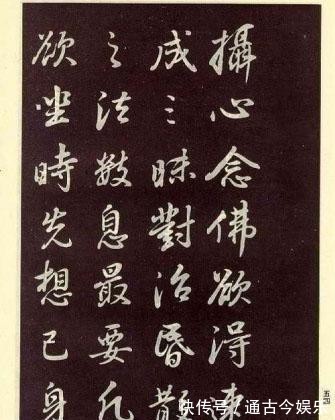 攝心念佛欲得速
成三昧對治昏散
之法數息最要凡
欲坐時先想己身
五四
快传号/通古今娱乐